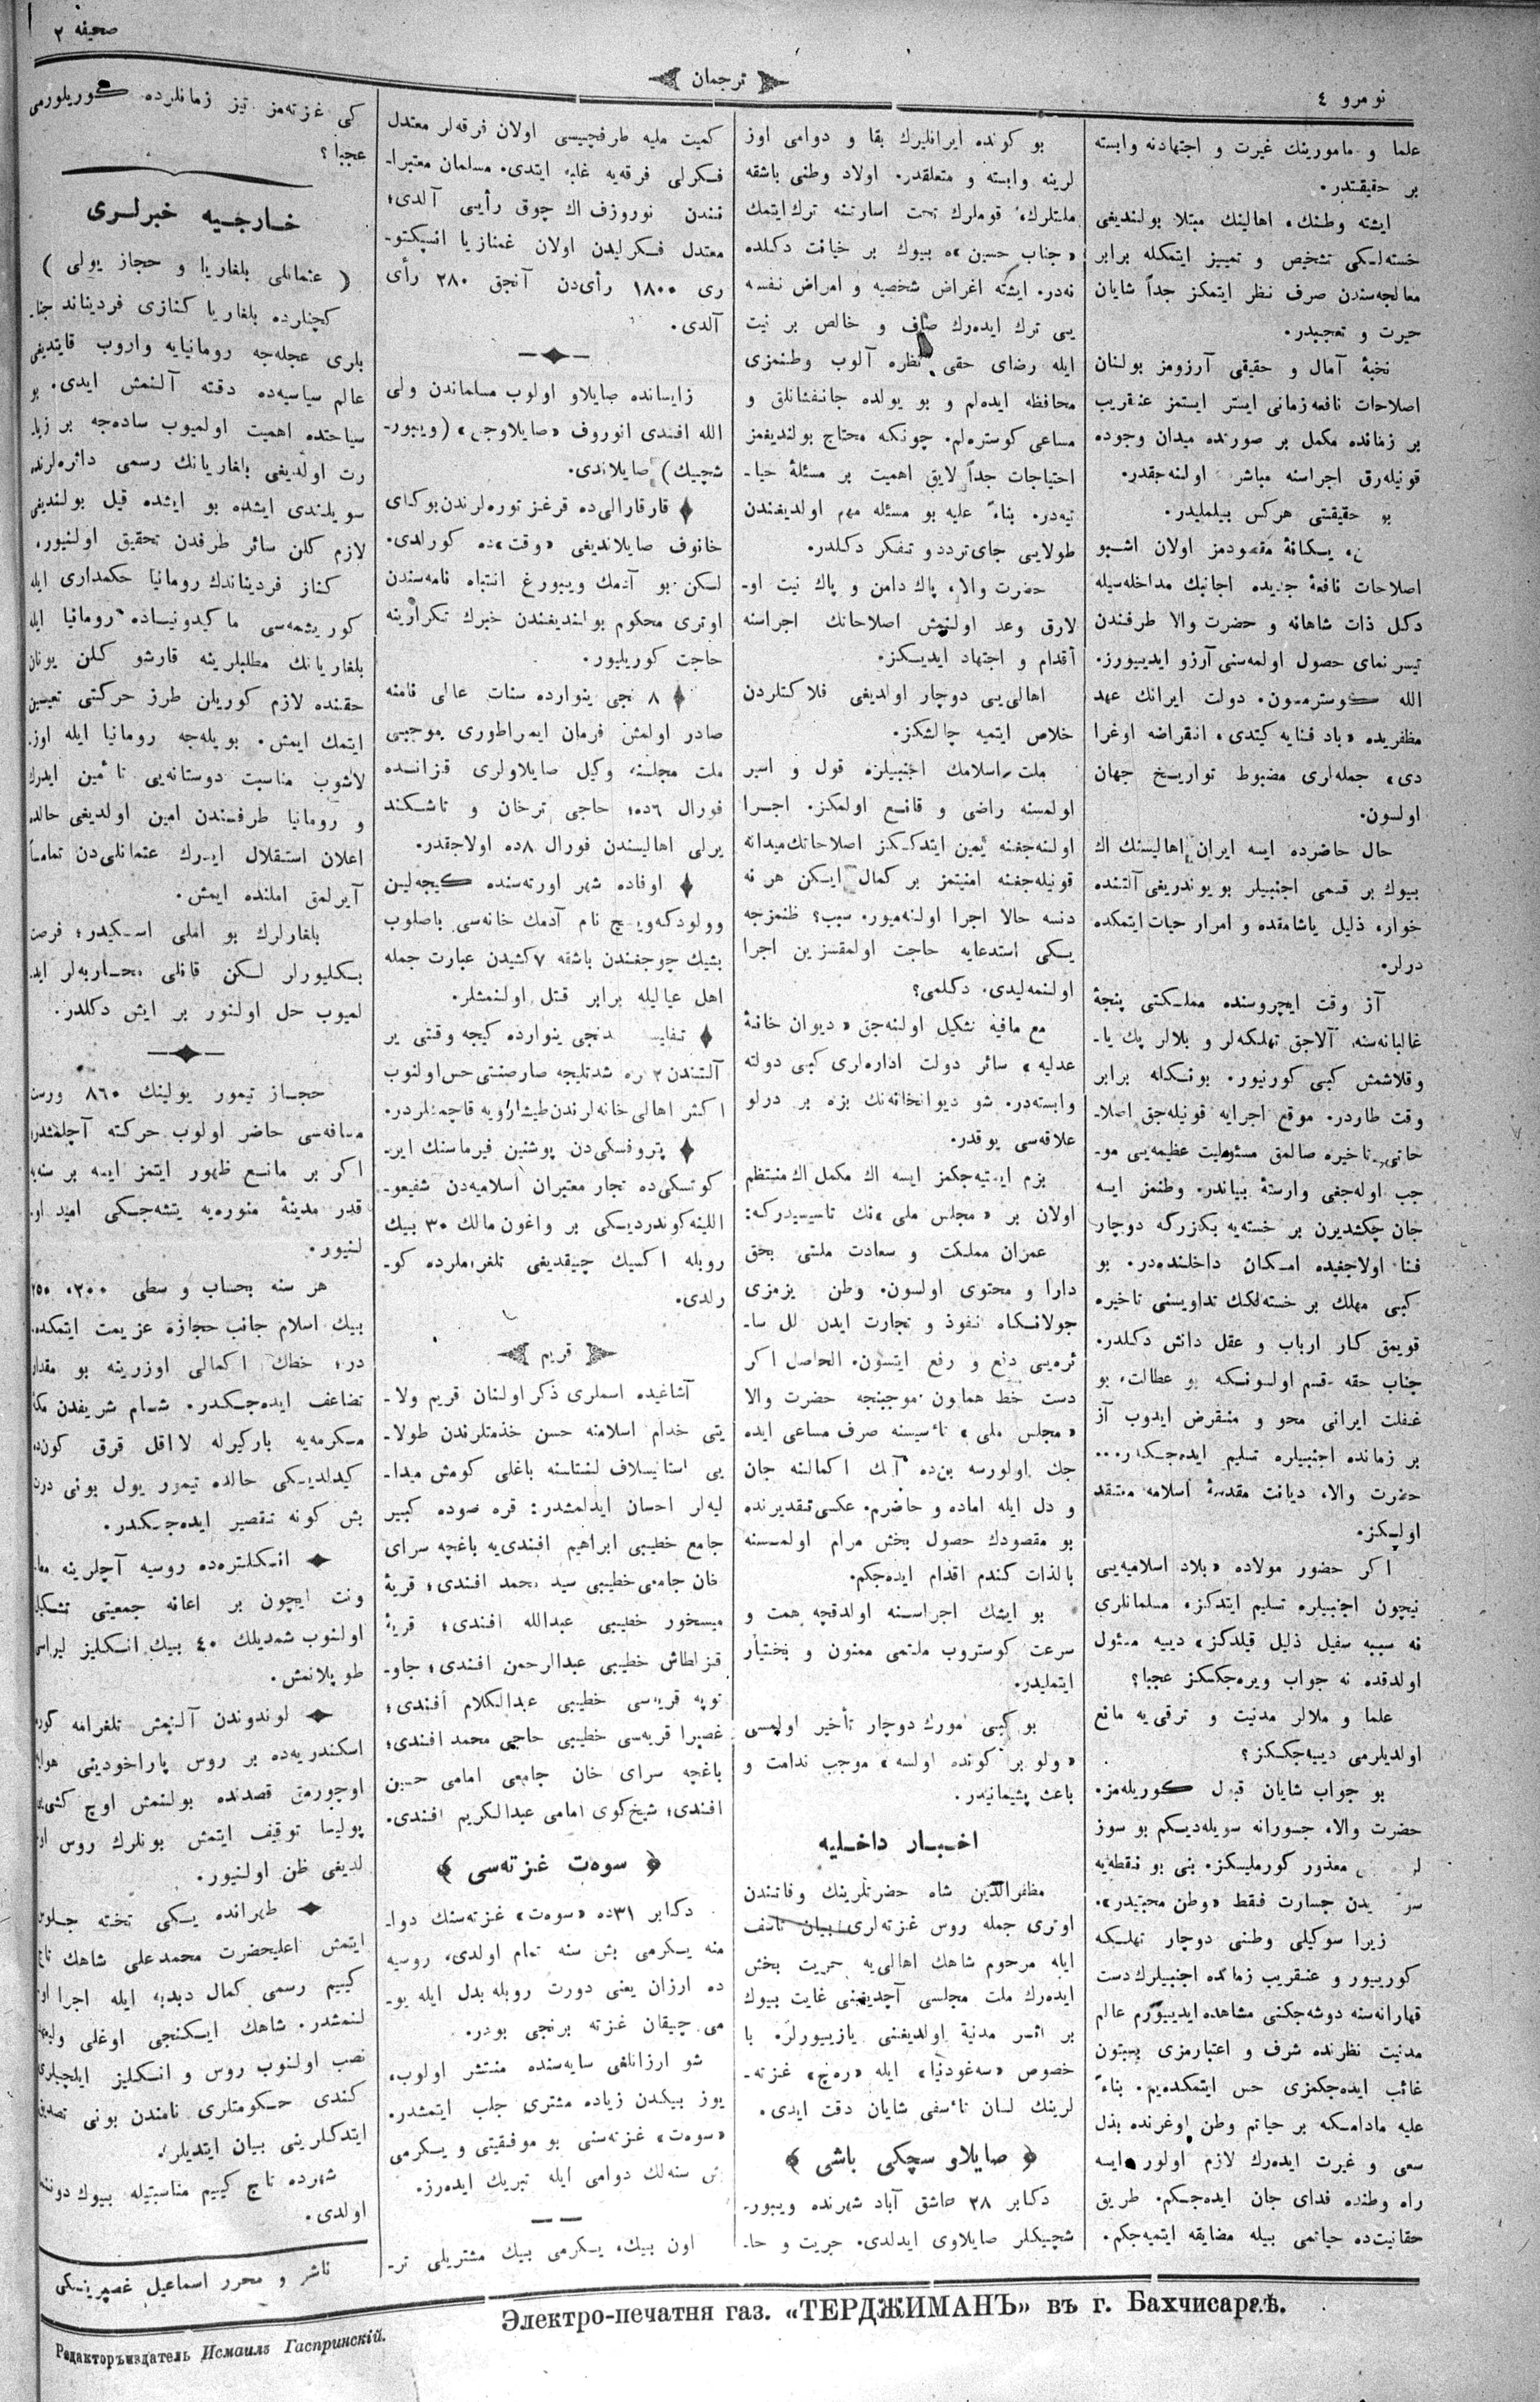 نومرو ٤
ترجمان
صحیفه ٢
علما و مامورینك غیرت و اجتهادنه وابسته
بر حقیقتدر.
ایشته وطنك، اهالینك مبتلا بولندیغی
خسته‌لكی تشخیص و تمییز ایتمكله برابر
معالجه‌سندن صرف نظر ایتمكز جداً شایان
حیرت و تعجبدر.
نخبهٔ آمال و حقیقی آرزومز بولنان
اصلاحات نافعه زمانی ایستر ایستمز عنقریب
بر زمانده مكمل بر صورتده میدان وجوده
قونیله‌رق اجراسنه مباشرت اولنه‌جقدر.
بو حقیقتی هركس بیلملیدر.
یكانهٔ مقصودمز اولان اشبو
اصلاحات نافعهٔ جدیده اجانبك مداخله‌سیله
دكل ذات شاهانه و حضرت والا طرفندن
تیسر نمای حصول اولمه‌سنی آرزو ایدییورز.
الله كوسترمسون. دولت ایرانك عهد
مظفریده «باد فنایه كیتدی، انقراضه اوغرا
دی» جمله‌لری مضبوط تواریخ جهان
اولسون.
حال حاضرده ایسه ایران اهالیسنك اك
بیوك بر قسمی اجنبیلر بویوندریغی آلتنده
خوار، ذلیل یاشامقده و امرار حیات ایتمكده
درلر.
آز وقت ایچروسنده مملكتی پنجهٔ
غالبانه‌سنه آلاجق تهلكه‌لر و بلالر پك یا-
وقلاشمش كبی كورنیور. بونكله برابر
وقت طاردر. موقع اجرایه قونیله‌جق اصلا-
حاتی تاخیره صالمق مسئولیت عظیمه‌یی مو-
جب اوله‌جغی وارستهٔ بیاندر. وطنمز ایسه
جان چكشدیرن بر خسته‌یه بكزركه دوچار
فنا اولاجغیده امكان داخلنده‌در. بو
كبی مهلك بر خسته‌لكك تداویسنی تاخیره
قویمق كار ارباب و عقل دانش دكلدر.
جناب حقه قسم اولسونكه بو عطالت، بو
غفلت ایرانی محو و منقرض ایدوب آز
بر زمانده اجنبیلره تسلیم ایده‌جكدر...
حضرت والا، دیانت مقدسهٔ اسلامه معتقد
اولیكز.
اكر حضور مولاده «بلاد اسلامیه‌یی
نیچون اجنبیلره تسلیم ایتدكز، مسلمانلری
نه سببه سفیل ذلیل قیلدكز» دییه مسئول
اولدقده نه جواب ویره‌جكسكز عجبا؟
علما و ملالر مدنیت و ترقی‌یه مانع
اولدیلرمی دییه‌جكسكز؟
بو جواب شایان قبول كوریله‌مز.
حضرت والا، جسورانه سویله‌دیكم بو سوز
معذور كورملیسكز. بنی بو نقطه‌یه
جسارت فقط «وطن محبتیدر».
زیرا سوكیلی وطنی دوچار تهلكه
كوریبور و عنقریب زمانده اجنبیلرك دست
قهارانه‌سنه دوشه‌جكنی مشاهده ایدییورم عالم
مدنیت نظرنده شرف و اعتبارمزی بسبتون
غائب ایده‌جكمزی حس ایتمكده‌یم. بناءً
علیه مادامكه بر حیاتم وطن اوغرنده بذل
سعی و غیرت ایده‌رك لازم اولور ایسه
راه وطنده فدای جان ایده‌جكم. طریق
حقانیت‌ده حیاتمی بیله مضایقه ایتمیه‌جكم.
بو كونده ایرانلیرك بقا و دوامی اوز
لرینه وابسته و متعلقدر. اولاد وطنی باشقه
ملتلرك، قوملرك تحت اسارتنه ترك ایتمك
«جناب حسین»ه بیوك بر خیانت دكلده
نه‌در. ایشته اغراض شخصیه و امراض نفسه
یی ترك ایده‌رك صاف و خالص بر نیت
ایله رضای حقی نظره آلوب وطنمزی
محافظه ایده‌لم و بو یولده جانفشانلق و
مساعی كوستره‌لم. چونكه محتاج بولندیغمز
احتیاجات جداً لایق اهمیت بر مسئلهٔ حیا-
تیه‌در. بناءً علیه بو مسئله مهم اولدیغندن
طولایی جای تردد و تفكر دكلدر.
حضرت والا، پاك دامن و پاك نیت او-
لارق وعد اولنمش اصلاحاتك اجراسنه
أقدام و اجتهاد ایدیكز.
اهالی‌یی دوچار اولدیغی فلاكتلردن
خلاص ایتمیه چالشكز.
ملت اسلامك اجنبیلره قول و اسیر
اولمسنه راضی و قانع اولمكز. اجرا
اولنه‌جغنه یمین ایتدككز اصلاحاتك میدانه
قونیله‌جغنه امنیتمز بر كمال ایكن هر نه
دنسه حالا اجرا اولنه‌میور. سبب؟ ظنمزجه
یكی استدعایه حاجت اولمقسزین اجرا
اولنمه‌لیدی. دكلمی؟
مع مافیه تشكیل اولنه‌جق «دیوان خانهٔ
عدلیه» سائر دولت اداره‌لری كبی دولته
وابسته‌در. شو دیوانخانه‌نك بزه بر درلو
علاقه‌سی یوقدر.
بزم ایسته‌جكمز ایسه اك مكمل اك منتظم
اولان بر «مجلس ملی»نك تاسیسیدركه:
عمران مملكت و سعادت ملتی بحق
دارا و محتوی اولسون. وطن یزمزی
جولانكاه نفوذ و تجارت ایدن لل سا-
ئره‌یی دفع و رفع ایتسون. الحاصل اكر
دست خط همایون موجبنجه حضرت والا
«مجلس ملی» تأسیسنه صرف مساعی ایده
جك اولورسه بن‌ده آنك اكمالنه جان
و دل ایله اماده و حاضرم. عكسی تقدیرنده
بو مقصودك حصول بخش مرام اولمسنه
بالذات كندم اقدام ایده‌جكم.
بو ایشك اجراسنه اولدقچه همت و
سرعت كوستروب ملتمی ممنون و بختیار
ایتملیدر.
بو كبی امورك دوچار تأخیر اولمسی
«ولو بر كونده اولسه» موجب ندامت و
باعث پشیمانیدر.
اخبار داخلیه
مظفرالدین شاه حضرتلرینك وفاتندن
اوتری جمله روس غزته‌لری بیان تاسف
ایله مرحوم شاهك اهالی‌یه حریت بخش
ایده‌رك ملت مجلسی آچدیغنی غایت بیوك
بر اثر مدنیة اولدیغنی یازییورلر. با
خصوص «سه‌غودنیا» ایله «ره‌چ» غزته-
لرینك لسان تاسفی شایان دقت ایدی.
﴿ صایلاو سچكی باشی ﴾
دكابر ٢٨ عاشق آباد شهرنده ویبور-
شچیكلر صایلاوی ایدلدی. حریت و حا-
كمیت ملیه طرفچیسی اولان فرقه‌لر معتدل
فكرلی فرقه‌یه غلبه ایتدی. مسلمان معتبرا-
تندن نوروزف اك چوق رأیی آلدی؛
معتدل فكرلیدن اولان غمنازیا انسپكتو-
ری ١٨٠٠ رأی‌دن آنجق ٢٨٠ رأی
آلدی.
زایسانده صایلاو اولوب مسلماندن ولی
الله افندی انوروف «صایلاوجی» (ویبور-
شچیك) صایلاندی.
قارقارالی‌ده قرغز توره‌لرندن بوكای
خانوف صایلاندیغی «وقت»ده كورلدی.
لسكن بو آدمك ویبورغ انتباه نامه‌سندن
اوتری محكوم بولندیغندن خبرك تكرارینه
حاجت كوریلیور.
٨ نجی ینوارده سنات عالی نامنه
صادر اولمش فرمان ایمپراطوری بموجبی
ملت مجلسنه وكیل صایلاولری قزانده
فورال ٦ده؛ حاجی ترخان و تاشكند
یرلی اهالیسندن فورال ٨ده اولاجقدر.
اوفاده شهر اورته‌سنده كیجه‌لین
وولودكه‌ویچ نام آدمك خانه‌سی باصلوب
بشیك چوجغندن باشقه ٧ كشیدن عبارت جمله
اهل عیالیله برابر قتل اولنمشلر.
تفلیسده نجی ینوارده كیجه وقتی یر
آلتندن ٢ شدتلیجه صارصنتی حس اولنوب
اكثر اهالی خانه‌لرندن طیشاریه قاچمشلردر.
پتروفسكی‌دن پوشتین فیرماسنك ایر-
كوتسكی‌ده تجار معتبران اسلامیه‌دن شفیعو-
اللینه كوندردیكی بر واغون مالك ٣٠ بیك
روبله اكسیك چیقدیغی تلغرافلرده كو-
رلدی.
قریم
آشاغیده اسملری ذكر اولنان قریم ولا-
یتی خدام اسلامنه حسن خذمتلرندن طولا-
یی استانیسلاف لنتاسنه باغلی كومش میدا-
لیه‌لر احسان ایدلمشدر: قره صوده كبیر
جامع خطیبی ابراهیم افندی‌یه باغچه سرای
خان جامعی خطیبی سید محمد افندی؛ قریهٔ
میسخور خطیبی عبدالله افندی؛ قریهٔ
قزلطاش خطیبی عبدالرحمن افندی؛ جاو-
توپه قریه‌سی خطیبی عبدالكلام افندی؛
غصپرا قریه‌سی خطیبی حاجی محمد افندی؛
باغچه سرای خان جامعی امامی حسین
افندی؛ شیخ كوی امامی عبدالكریم افندی.
﴿ سوه‌ت غزته‌سی ﴾
دكابر ٣١ده «سوه‌ت» غزته‌سنك دوا-
منه یكرمی بش سنه تمام اولدی، روسیه
ده ارزان یعنی دورت روبله بدل ایله یو-
می چیقان غزته برنجی بودر.
شو ارزانلغی سایه‌سنده منتشر اولوب،
یوز بیكدن زیاده مشتری جلب ایتمشدر.
«سوه‌ت» غزته‌سنی بو موفقیتی و یكرمی
بش سنه‌لك دوامی ایله تبریك ایده‌رز.
اون بیك، یكرمی بیك مشتریلی تر-
كی غزته‌مز تیز زمانلرده كوریلورمی
عجبا؟
خارجیه خبرلری
( عثمانلی بلغاریا و حجاز یولی )
كچنلرده بلغاریا كنازی فردیناند جنا-
بلری عجله‌جه رومانیایه واروب قایتدیغی
عالم سیاسیه‌ده دقته آلنمش ایدی. بو
سیاحتده اهمیت اولمیوب ساده‌جه بر زیا-
رت اولدیغی بلغاریانك رسمی دائره‌لرنده
سویلندی ایشده بو ایشده قیل بولندیغی
لازم كلن سائر طرفدن تحقیق اولنیور.
كناز فردیناندك رومانیا حكمداری ایله
كوریشمه‌سی ماكیدونیاده رومانیا ایله
بلغاریانك مطلبلرینه قارشو كلن یونان
حقنده لازم كوریلن طرز حركتی تعیین
ایتمك ایمش. بویله‌جه رومانیا ایله اوز-
لاشوب مناسبت دوستانه‌یی تأمین ایدرك
و رومانیا طرفندن امین اولدیغی حالده
اعلان استقلال ایدرك عثمانلی‌دن تماماً
آیرلمق املنده ایمش.
بلغارلرك بو املی اسكیدر؛ فرصت
بكلیورلر لكن قانلی محاربه‌لر اید-
لمیوب حل اولنور بر ایش دكلدر.
حجاز تیمور یولینك ٨٦٠ ورست
مسافه‌سی حاضر اولوب حركته آچلمشدر؛
اكر بر مانع ظهور ایتمز ایسه بر سنه‌یه
قدر مدینهٔ منوره‌یه یتشه‌جكی امید او-
لنیور.
هر سنه بحساب وسطی ٢٠٠، ٢٥٠
بیك اسلام جانب حجازه عزیمت ایتمكده
در؛ خطك اكمالی اوزرینه بو مقدار
تضاعف ایده‌جكدر. شام شریفدن مكهٔ
مكرمه‌یه باركیرله لااقل قرق كونده
كیدلدیكی حالده تیمور یول بونی درت
بش كونه تقصیر ایده‌جكدر.
انكلتره‌ده روسیه آچلرینه معا-
ونت ایچون بر اعانه جمعیتی تشكیل
اولنوب شمدیلك ٤٠ بیك انكلیز لیراسی
طوپلانمش.
لوندوندن آلنمش تلغرافه كوره
اسكندریه‌ده بر روس پاراخودینی هوایه
اوچورمق قصدنده بولنمش اوچ كشی‌یی
پولیسا توقیف ایتمش بونلرك روس او-
لدیغی ظن اولنیور.
طهرانده یكی تخته جلوس
ایتمش اعلیحضرت محمد علی شاهك تاج
كییم رسمی كمال دبدبه ایله اجرا او-
لنمشدر. شاهك ایكنجی اوغلی ولیعهد
نصب اولنوب روس و انكلیز ایلچیلری
كندی حكومتلری نامندن بونی تصدیق
ایتدكلرینی بیان ایتدیلر.
شهرده تاج كییم مناسبتیله بیوك دوننما
اولدی.
ناشر و محرر اسماعیل غصپرینسكی
Электро-печатня газ. «ТЕРДЖИМАНЪ» въ г. Бахчисараѣ.
Редакторъ-издатель Исмаилъ Гаспринскій.